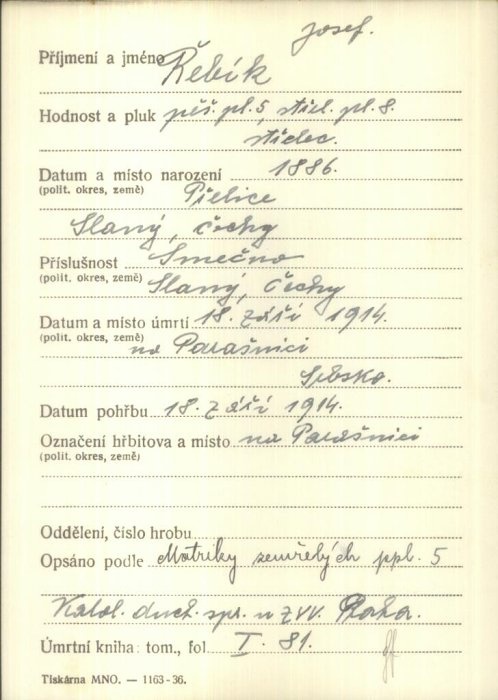 Josef.
Příjmení a jméno Řebík
Hodnost a pluk pěš. pl. 5, střel. pl. 8.
střelec.
Datum a místo narození 1886.
(polit. okres, země) Přelice
Slaný, Čechy
Příslušnost Smečno
(polit. okres, země) Slaný, Čechy
Datum a místo úmrtí 18. září 1914.
(polit. okres, země) na Parašnici
Srbsko.
Datum pohřbu 18. září 1914.
Označení hřbitova a místo na Parašnici
(polit. okres, země)
Oddělení, číslo hrobu
Opsáno podle Matriky zemřelých ppl. 5
Katol. duch. spr. u ZVV. Praha.
Úmrtní kniha: tom., fol. I. 81.
Tiskárna MNO. — 1163-36.